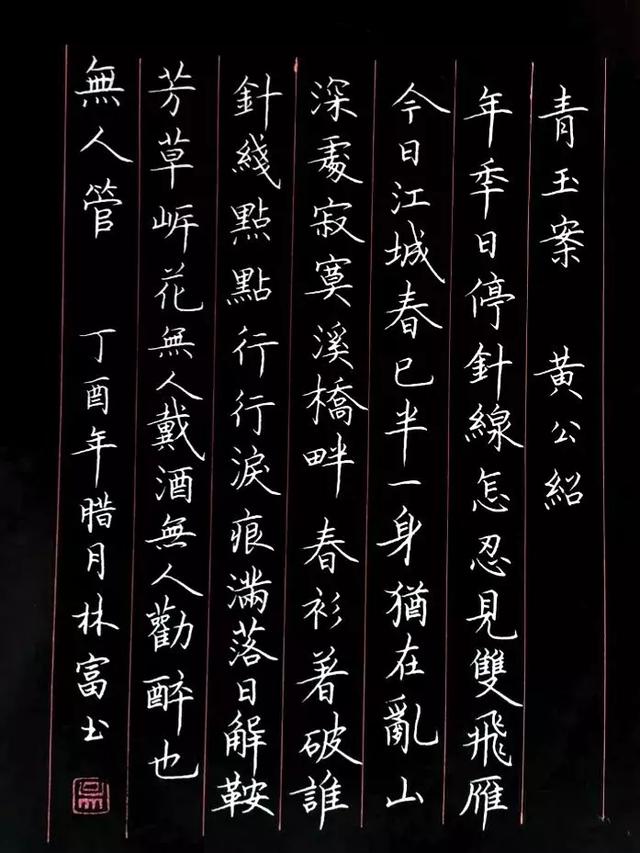 青玉案 黄公紹
年秊日停針線怎忍見雙飛雁
今日江城春已半一身猶在亂山
深處寂寞溪橋畔春衫著破誰
針綫點點行行淚痕滿落日解鞍
芳草岍花無人戴酒無人勸醉也
無人管 丁酉年腊月林富书